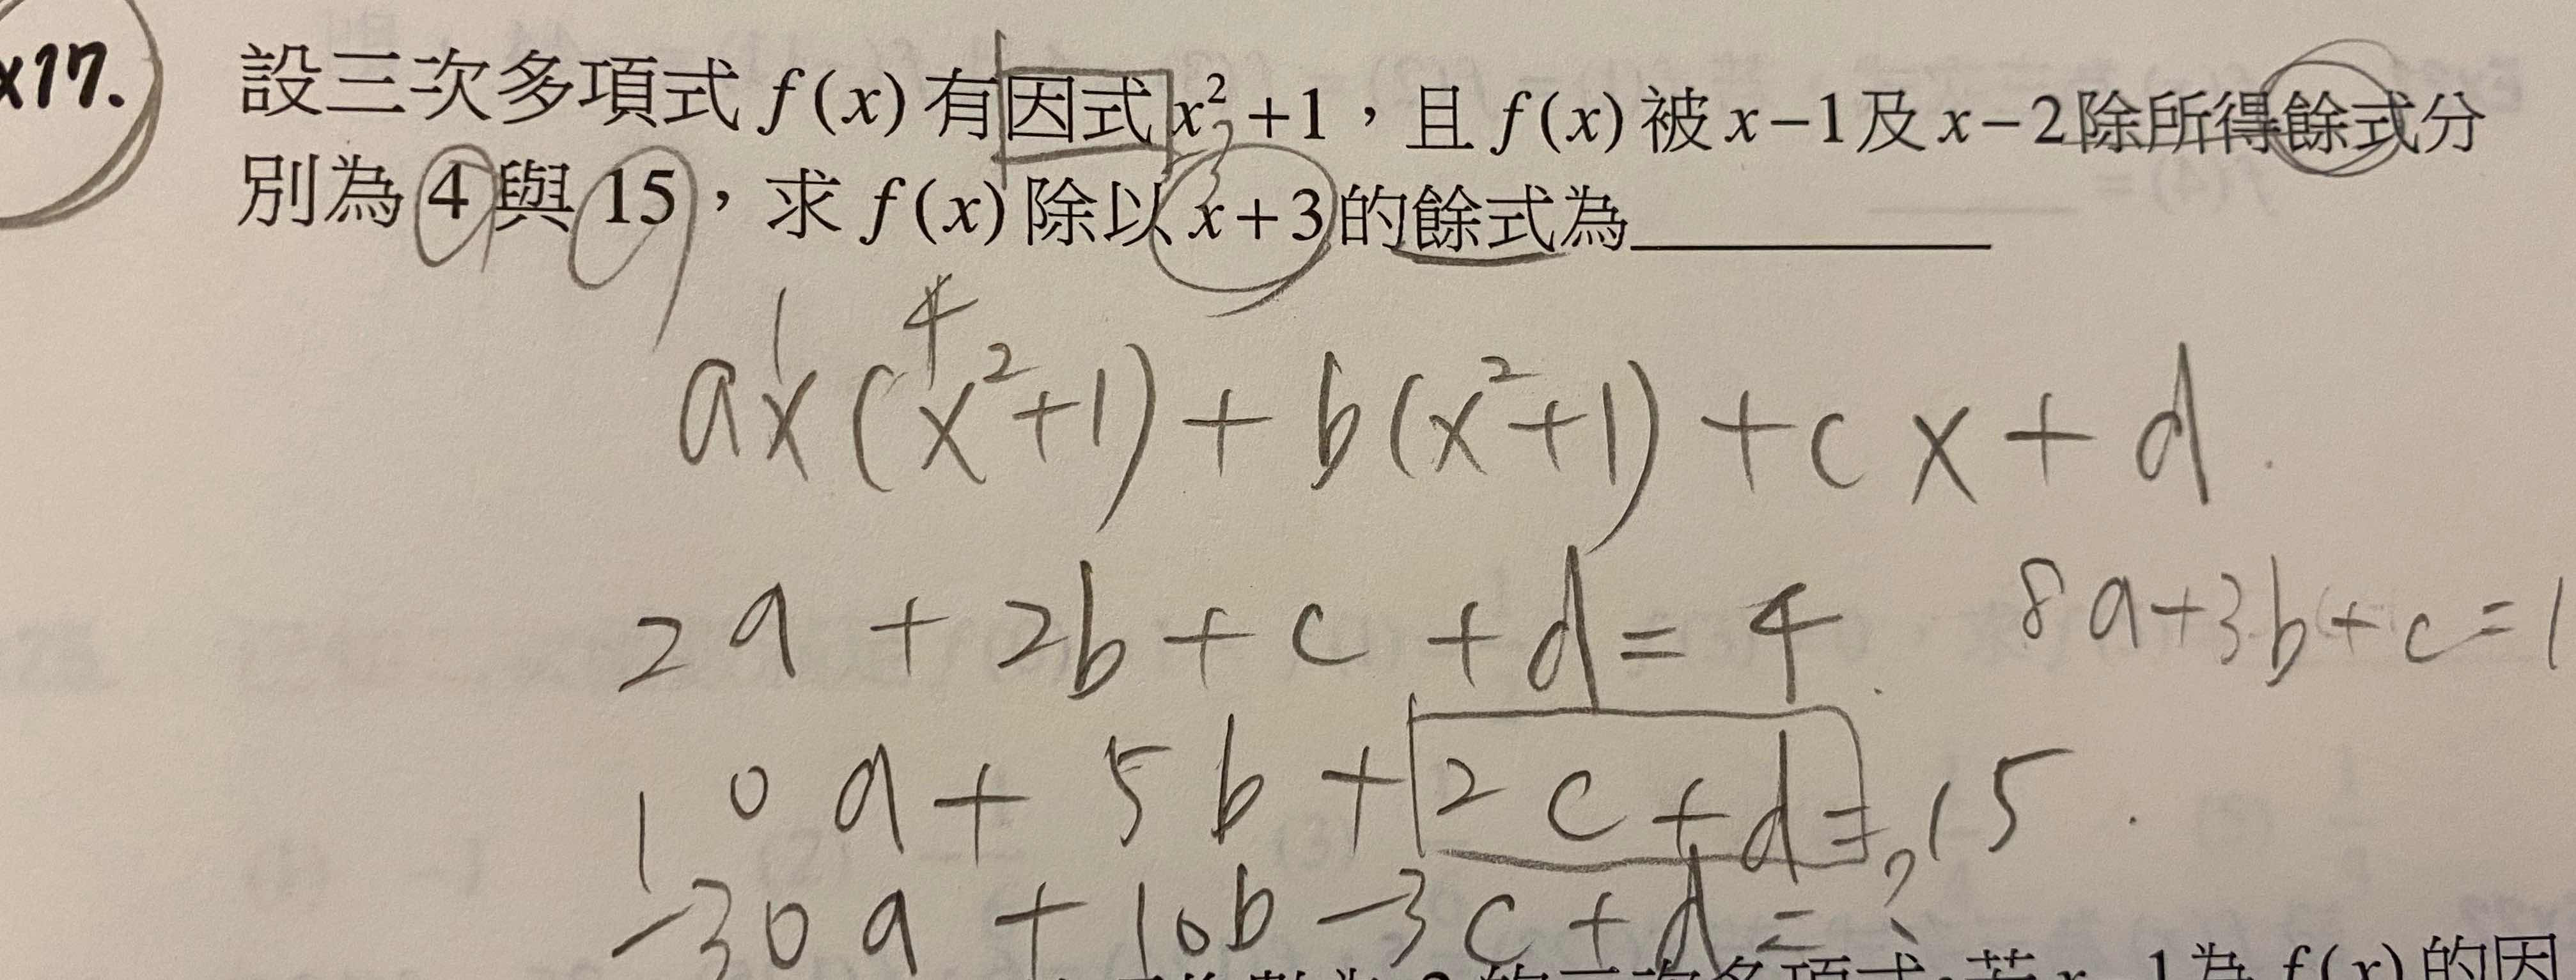 x17. 設三次多項式 f(x) 有因式 x²+1，且 f(x) 被 x−1 及 x−2 除所得餘式分
別為 4 與 15，求 f(x) 除以 x+3 的餘式為
1 4
ax(x²+1)+b(x²+1)+cx+d
2a+2b+c+d=4 8a+3b+c=1
10a+5b+2c+d=15
-30a+10b-3c+d=?
多項式，若 x 1 為 f(x) 的因